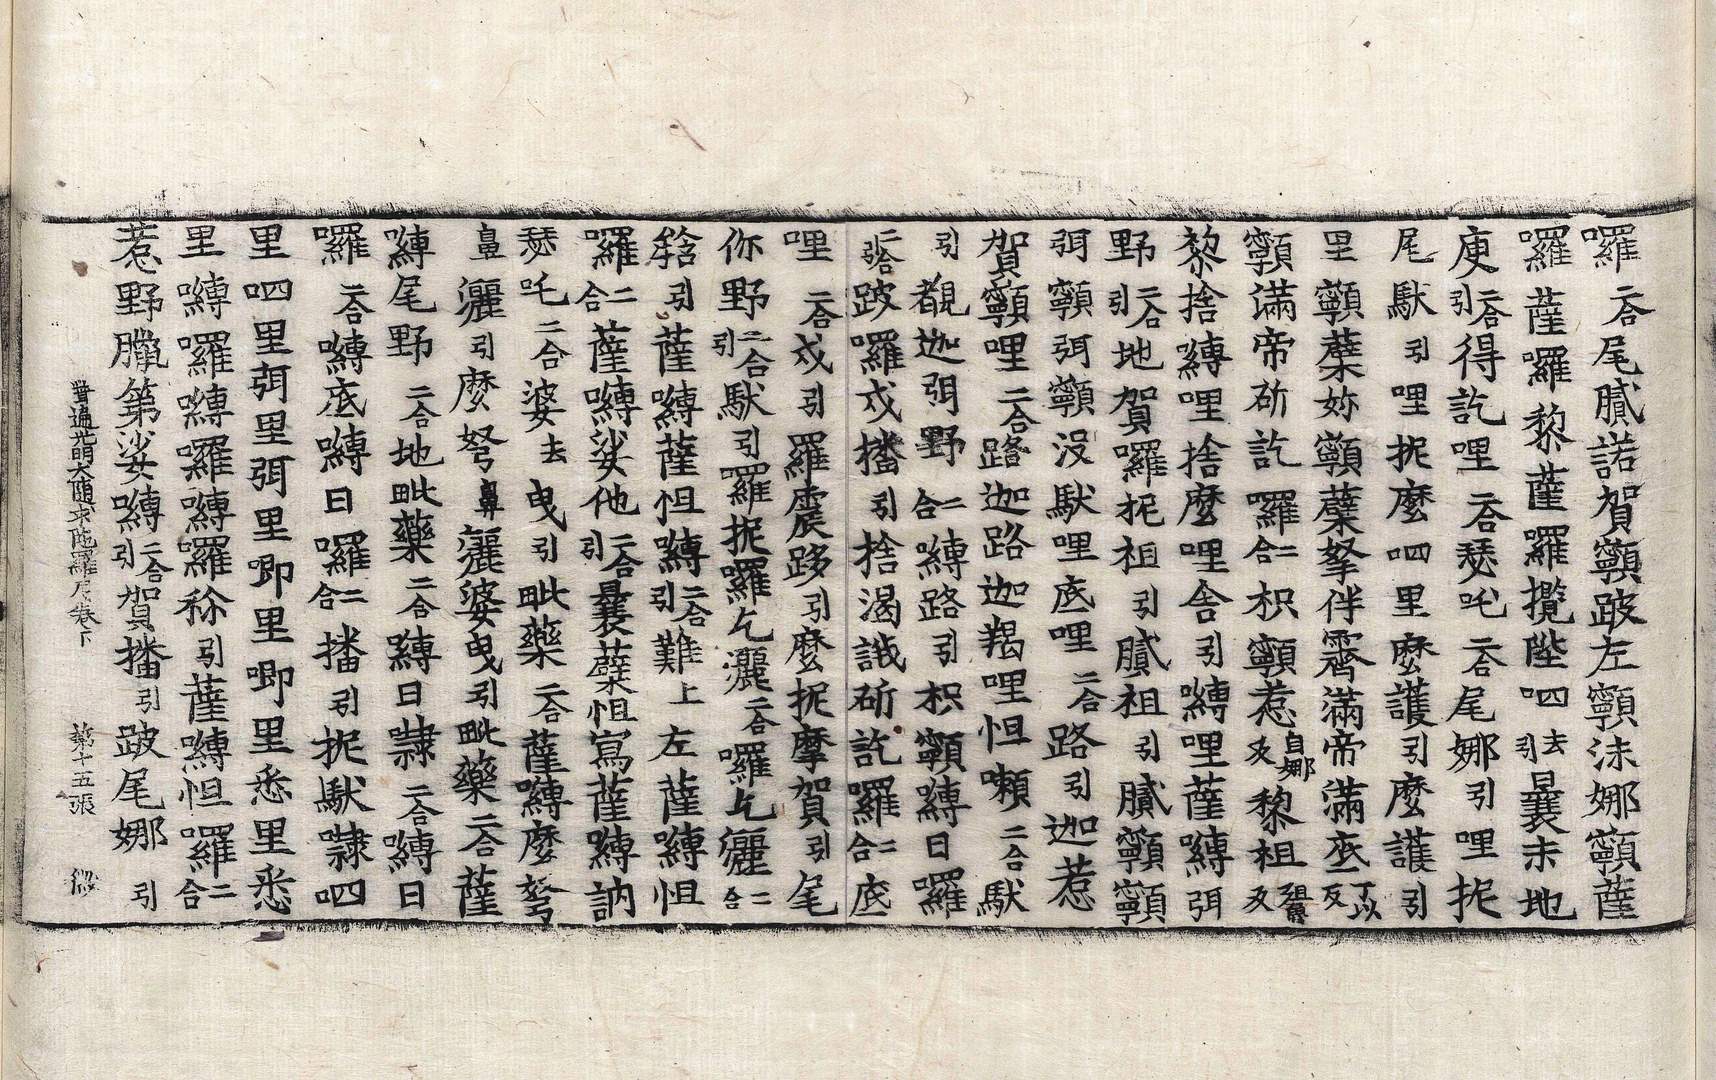 囉二合尾膩諾賀顙跛左顙沬娜顙薩
囉薩囉黎薩囉攬陛呬去引曩未地
庾二合引得訖哩二合瑟吒二合尾娜引哩抳
尾馱引哩抳麽呬里麽護引麽護引
里顙蘖妳顙蘖拏伴霽滿帝滿底丁以反
顙滿帝斫訖囉二合枳顙惹自娜反黎祖
黎捨嚩哩捨麽哩舍引嚩哩薩嚩弭
野二合引地賀囉抳祖引膩祖引膩顙顙
弭顙弭顙没馱哩底哩二合路引迦惹
賀顙哩二合路迦路迦羯哩怛嚩二合馱
引覩迦弭野二合嚩路引枳顙嚩日囉
二合跛囉戍播引捨渴誐斫訖囉二合底
哩二合戍引羅震跢引麽抳摩賀引尾
你野二合引馱引囉抳囉乞灑二合囉乞灑二合
䅶引薩嚩薩怛嚩二合引難上左薩嚩怛
囉二合薩嚩娑他二合引曩蘖怛寫薩嚩訥
瑟吒二合婆去曳引毗藥二合薩嚩麽弩
鼻灑引麽弩鼻灑婆曳引毗藥二合薩
嚩尾野二合地毗藥二合嚩日隷二合嚩日
囉二合嚩底嚩日囉二合播引抳馱隷呬
里呬里弭里弭里唧里唧里悉里悉
里嚩囉嚩囉嚩囉祢引薩嚩怛囉二合
惹野臘第娑嚩二合引賀播引跛尾娜引
普遍光明大随求陁羅尼卷下 第十五張